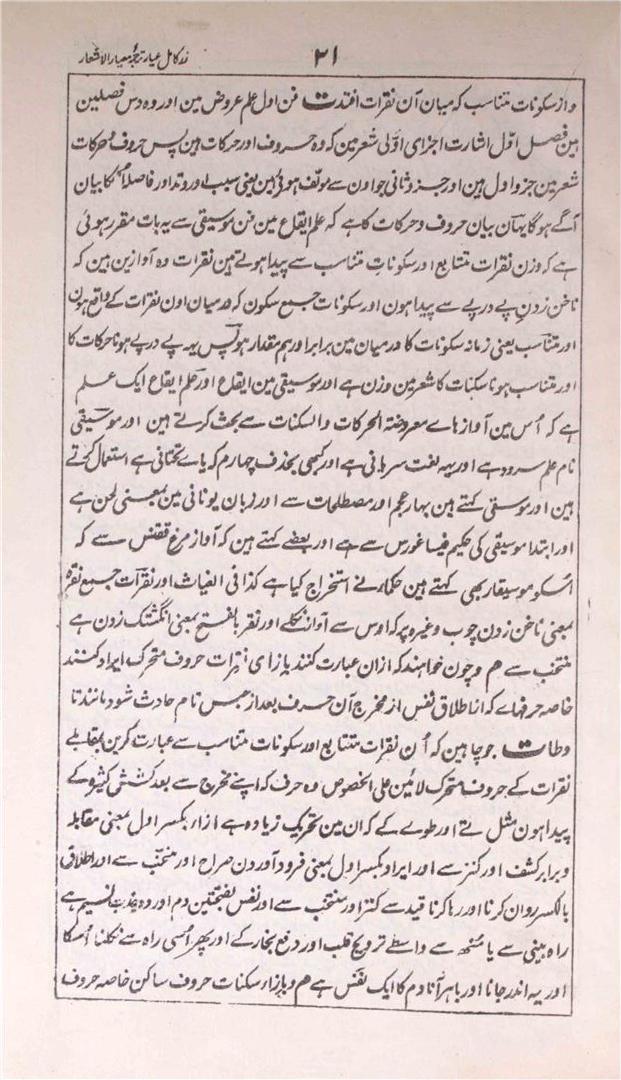 ۲۱ زر کامل عیار ترجمۂ معیار الاشعار
و از سکونات متناسب کہ میان آن نقرات افتدت فن اول علم عروض مین اور وہ دس فصلین
ہین فصل اوّل اشارت اجزای اولٰی شعر مین کہ وہ حروف اور حرکات ہین پس حروف و حرکات
شعر مین جزو اول ہین اور جزو ثانی جو اون سے مولف ہوئی ہین یعنی سبب اور وتد اور فاصلا اسکا بیان
آگے ہو گا یہان بیان حروف و حرکات کا ہے کہ علم ایقاع مین فن موسیقی سے یہ بات مقرر ہوئی
ہے کہ وزن نقرات متتابع اور سکونات متناسب سے پیدا ہوتے ہین نقرات وہ آوازین ہین کہ
ناخن زدن پے در پے سے پیدا ہون اور سکونات جمع سکون کہ درمیان اون نقرات کے واقع ہون
اور متناسب یعنی زمانہ سکونات کا درمیان مین برابر اور ہم مقدار ہو پس یہہ پے در پے ہونا حرکات کا
اور متناسب ہونا سکنات کا شعر مین وزن ہے اور موسیقی مین ایقاع اور علم ایقاع ایک علم
ہے کہ اُس مین آواز ہاے معروضۃ الحرکات والسکنات سے بحث کرتے ہین اور موسیقی
نام علم سرود ہے اور یہہ لغت سریانی ہے اور کبھی بحذف چہارم کہ یاے تحتانی ہے استعمال کرتے
ہین اور موسقی کہتے ہین بہار عجم اور مصطلحات سے اور زبان یونانی مین بمعنی لحن ہے
اور ابتدا موسیقی کی حکیم فیساغورس سے ہے اور بعضے کہتے ہین کہ آواز مرغ ققنس سے کہ
اُسکو موسیقار بھی کہتے ہین حکماء نے استخراج کیا ہے کذا فی الغیاث اور نقرات جمع نقرہ
بمعنی ناخن زدن چوب وغیرہ پر کہ اوس سے آواز نکلے اور نقر بالفتح بمعنی انگشتک زدن ہے
منتخب سے ھم و چون خواہند کہ ازان عبارت کنند بازای نقرات حروف متحرک ایراد کنند
خاصہ حرفہاے کہ انا طلاق نفس از مخرج آن حرف بعد از حبس تام حادث شود مانند تا
و طات جو چاہین کہ اُن نقرات متتابع اور سکونات متناسب سے عبارت کرین بمقابلے
نقرات کے حروف متحرک لائین علی الخصوص وہ حرف کہ اپنے مخرج سے بعد کششی کثیرہ کے
پیدا ہون مثل تے اور طوے کے کہ ان مین تحریک زیادہ ہے ازاء بکسر اول بمعنی مقابلہ
و برابر کشف اور کنز سے اور ایراد بکسر اول بمعنی فرود آوردن صراح اور منتخب سے اور اطلاق
بالکسر روان کرنا اور رہا کرنا قید سے کنز اور منتخب سے اور نفس بفتحتین دم اور وہ جذب نسیم ہے
راہ بینی سے یا منھ سے واسطے ترویح قلب اور دفع بخار کے اور پھر اُسی راہ سے نکلنا اُسکا
اور یہ اندر جانا اور باہر آنا دم کا ایک نفس ہے ھم و بازاء سکنات حروف ساکن خاصہ حروف